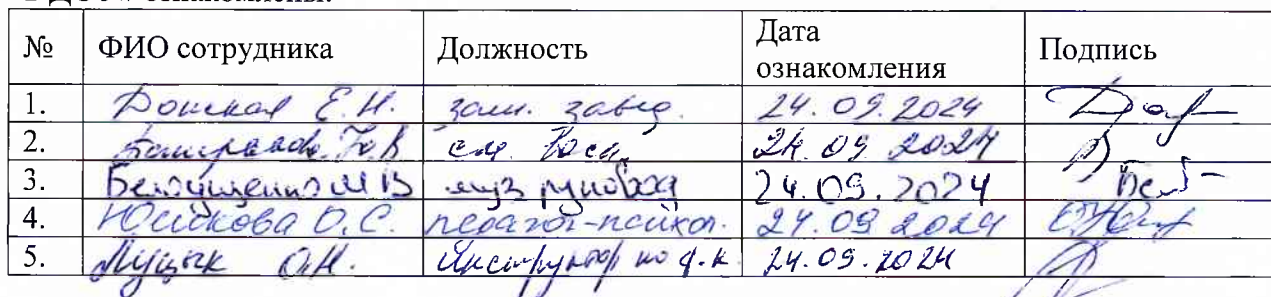 ознакомлены.
№ ФИО сотрудника Должность Дата ознакомления Подпись
1. Донская Е.Н. зам. завед. 24.09.2024
2. ст. Восп. 24.09 2024
3. М В муз руковод 24.09.2024
4. Юшкова О.С. педагог-психол. 24.09 2024
5. Луцык О.Н. Инструктор по ф.к. 24.09.2024